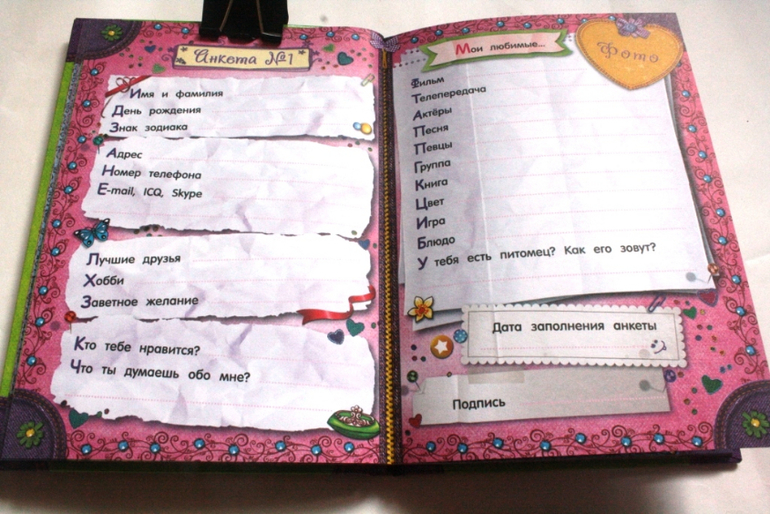 Анкета №1
Имя и фамилия
День рождения
Знак зодиака
Адрес
Номер телефона
E-mail, ICQ, Skype
Лучшие друзья
Хобби
Заветное желание
Кто тебе нравится?
Что ты думаешь обо мне?
Мои любимые...
Фото
Фильм
Телепередача
Актёры
Песня
Певцы
Группа
Книга
Цвет
Игра
Блюдо
У тебя есть питомец? Как его зовут?
Дата заполнения анкеты
Подпись